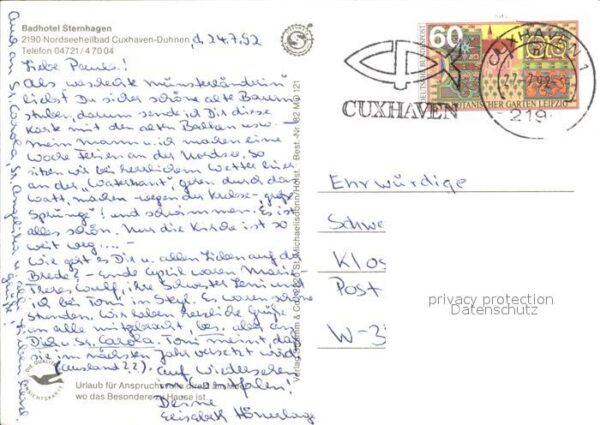 Badhotel Sternhagen
2190 Nordseeheilbad Cuxhaven-Duhnen
Telefon 04721/47004
d. 24.7.92
Liebe Paula!
Als waschechte Münsterländerin
liebst Du sicher schöne alte Bauern-
stuben, darum sende ich Dir diese
Karte mit den alten Balken usw.
Mein Mann u. ich machen eine
Woche Ferien an der Nordsee. So
sitzen wir bei herrlichem Wetter hier
an der "Waterkant", gehen durch das
Watt, machen wegen der Krebse "große
Sprünge"! und schwimmen. Es ist
alles schön. Nur die Kirche ist so
weit weg....-
Wie geht es Dir u. allen Lieben auf der
Brede? - Ende April waren Maria
Theres Wulf, ihre Schwester Leni und
ich bei Toni in Steyl. Es waren schöne
Stunden. Wir haben herzliche Grüße
an alle mitgebracht, bes. aber an
Dich u. Sr. Carola. Toni meint, daß
sie im nächsten Jahr versetzt wird
(Ausland??). Auf Wiedersehen
in Westfalen!
Deine
Elisabeth
Auch an Sr. Carola, Sr. Angelika u.
Grüße!
DIE QUALITÄTS
ANSICHTSKARTE
Urlaub für Anspruchsvolle direkt am Meer,
wo das Besondere zu Hause ist.
Best.-Nr. 192 Wo 121
Verlag Schramm & Co, St. Michaelisdonn/Holst.
60
DEUTSCHE BUNDESPOST
BOTANISCHER GARTEN LEIPZIG
CUXHAVEN
CUXHAVEN 1
219
Ehrwürdige
Schwe
Klos
Post
W-3
privacy protection
Datenschutz